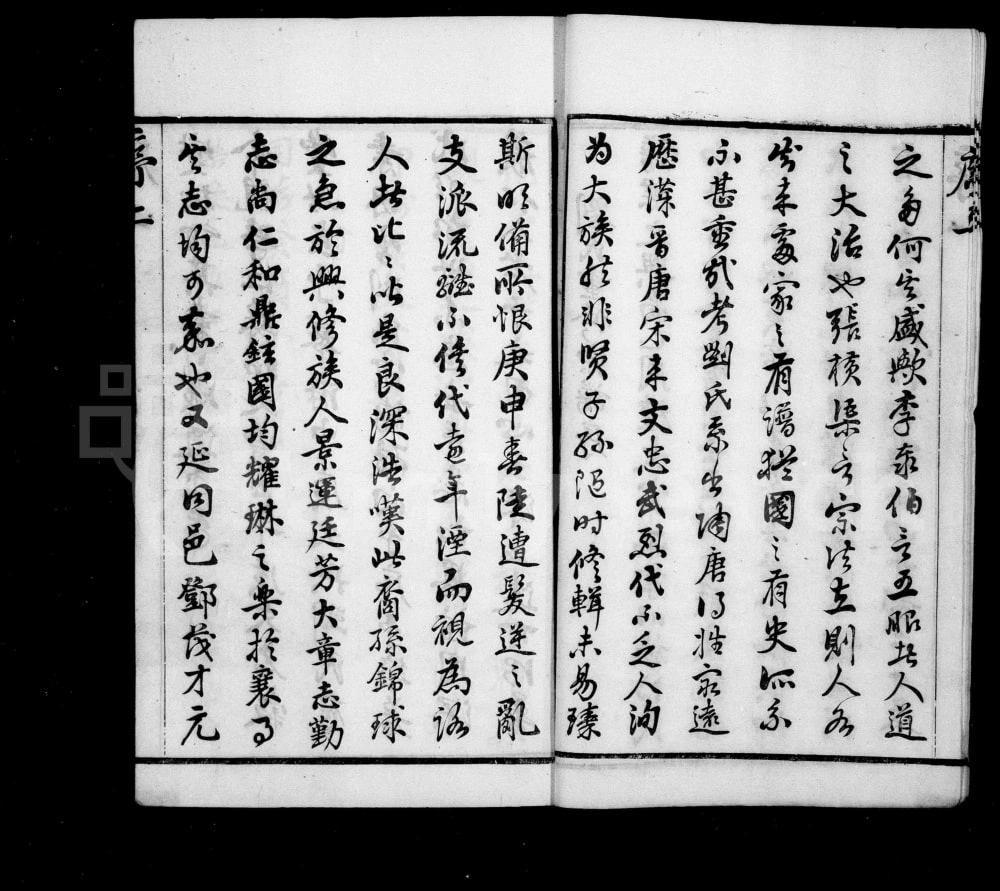 之何其盛歟李泰伯言五服者人道
之大治也張橫渠言宗法立則人各
知来處家之有譜猶國之有史所系
不甚重哉考劉氏系出陶唐得姓最遠
歷漢晋唐宋来文忠武烈代不乏人洵
为大族然非贤子孫随时修輯未易臻
斯明備所恨庚申春陡遭髮逆之亂
支派流離不修代遠年湮而視為路
人者比〻皆是良深浩嘆此裔孫錦球
之急於興修族人景運廷芳大章志勤
志尚仁和鼎鉉國均耀琳之樂於襄事
其志均可嘉也又延同邑鄧茂才元
序二